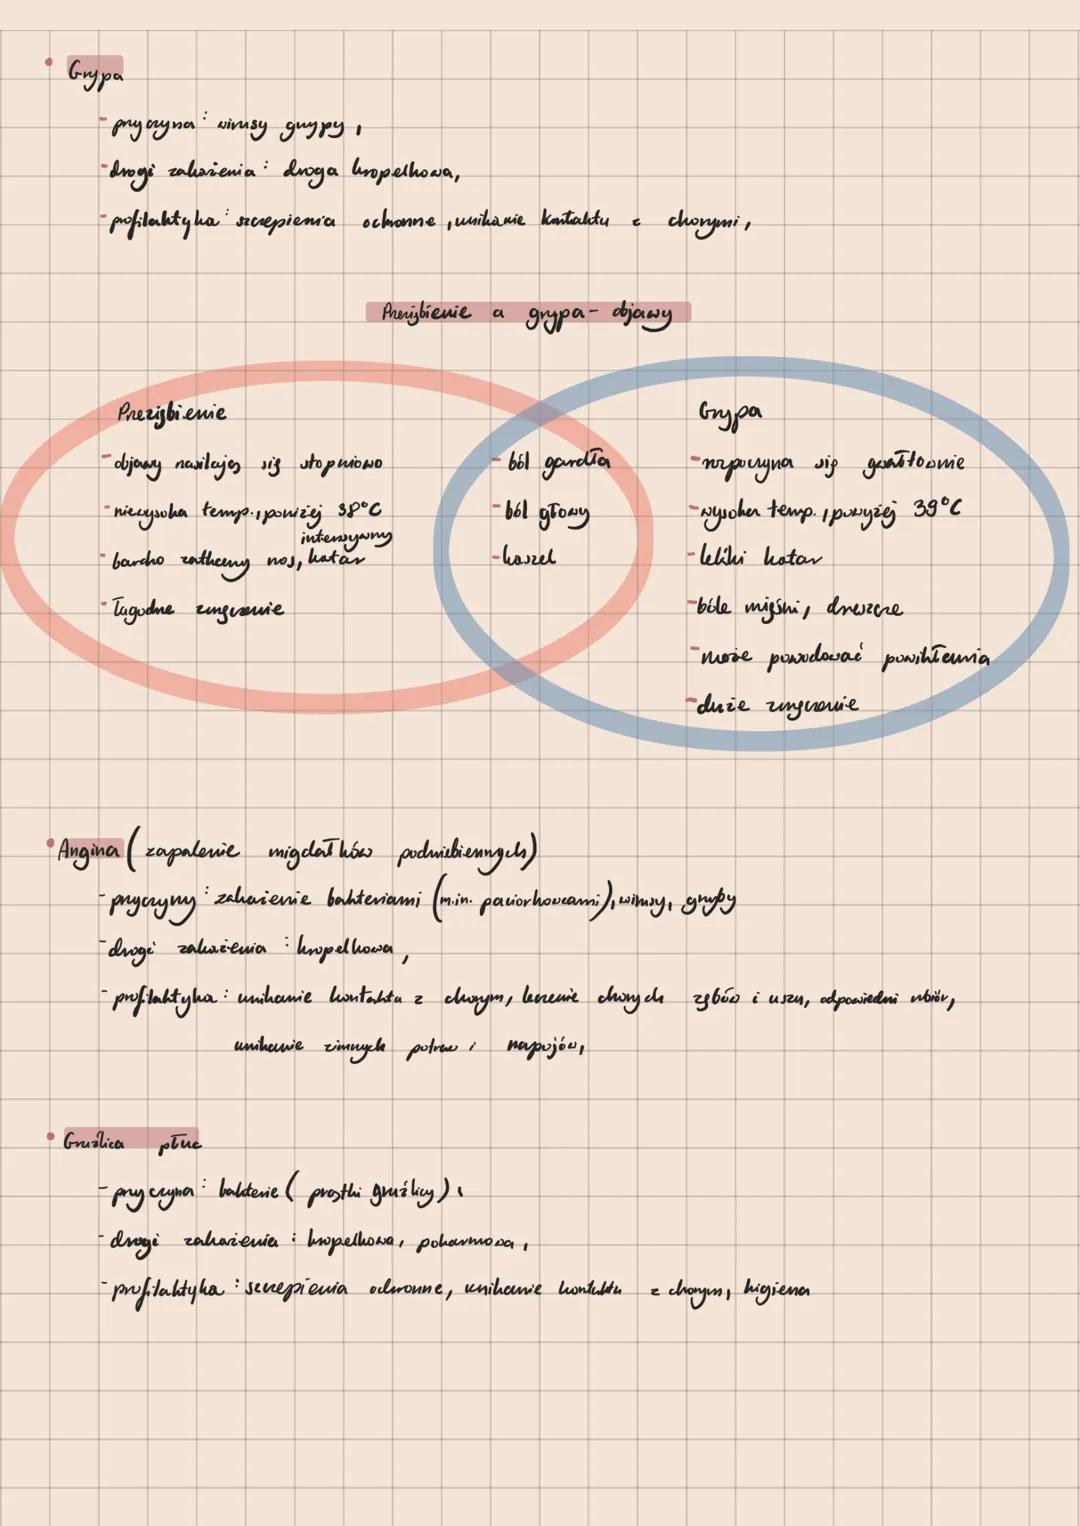 Grypa
- przyczyna: wirusy grypy,
- drogi zakażenia: droga kropelkowa,
- profilaktyka: szczepienia ochronne, unikanie kontaktu z chorymi,
Przeziębienie a grypa - objawy
Przeziębienie
- objawy nasilają się stopniowo
- niewysoka temp., poniżej 38°C
intensywny
- bardzo zatkany nos, katar
- łagodne zmęczenie
- ból gardła
- ból głowy
- kaszel
Grypa
- rozpoczyna się gwałtownie
- wysoka temp., powyżej 39°C
- lekki katar
- bóle mięśni, dreszcze
- może powodować powikłania
- duże zmęczenie
Angina (zapalenie migdałków podniebiennych)
- przyczyny: zakażenie bakteriami (m.in. paciorkowcami), wirusy, grzyby
- drogi zakażenia: kropelkowa,
- profilaktyka: unikanie kontaktu z chorym, leczenie chorych zębów i uszu, odpowiedni ubiór,
unikanie zimnych potraw i napojów,
Gruźlica płuc
- przyczyna: bakterie (prątki gruźlicy),
- drogi zakażenia: kropelkowa, pokarmowa,
- profilaktyka: szczepienia ochronne, unikanie kontaktu z chorym, higiena